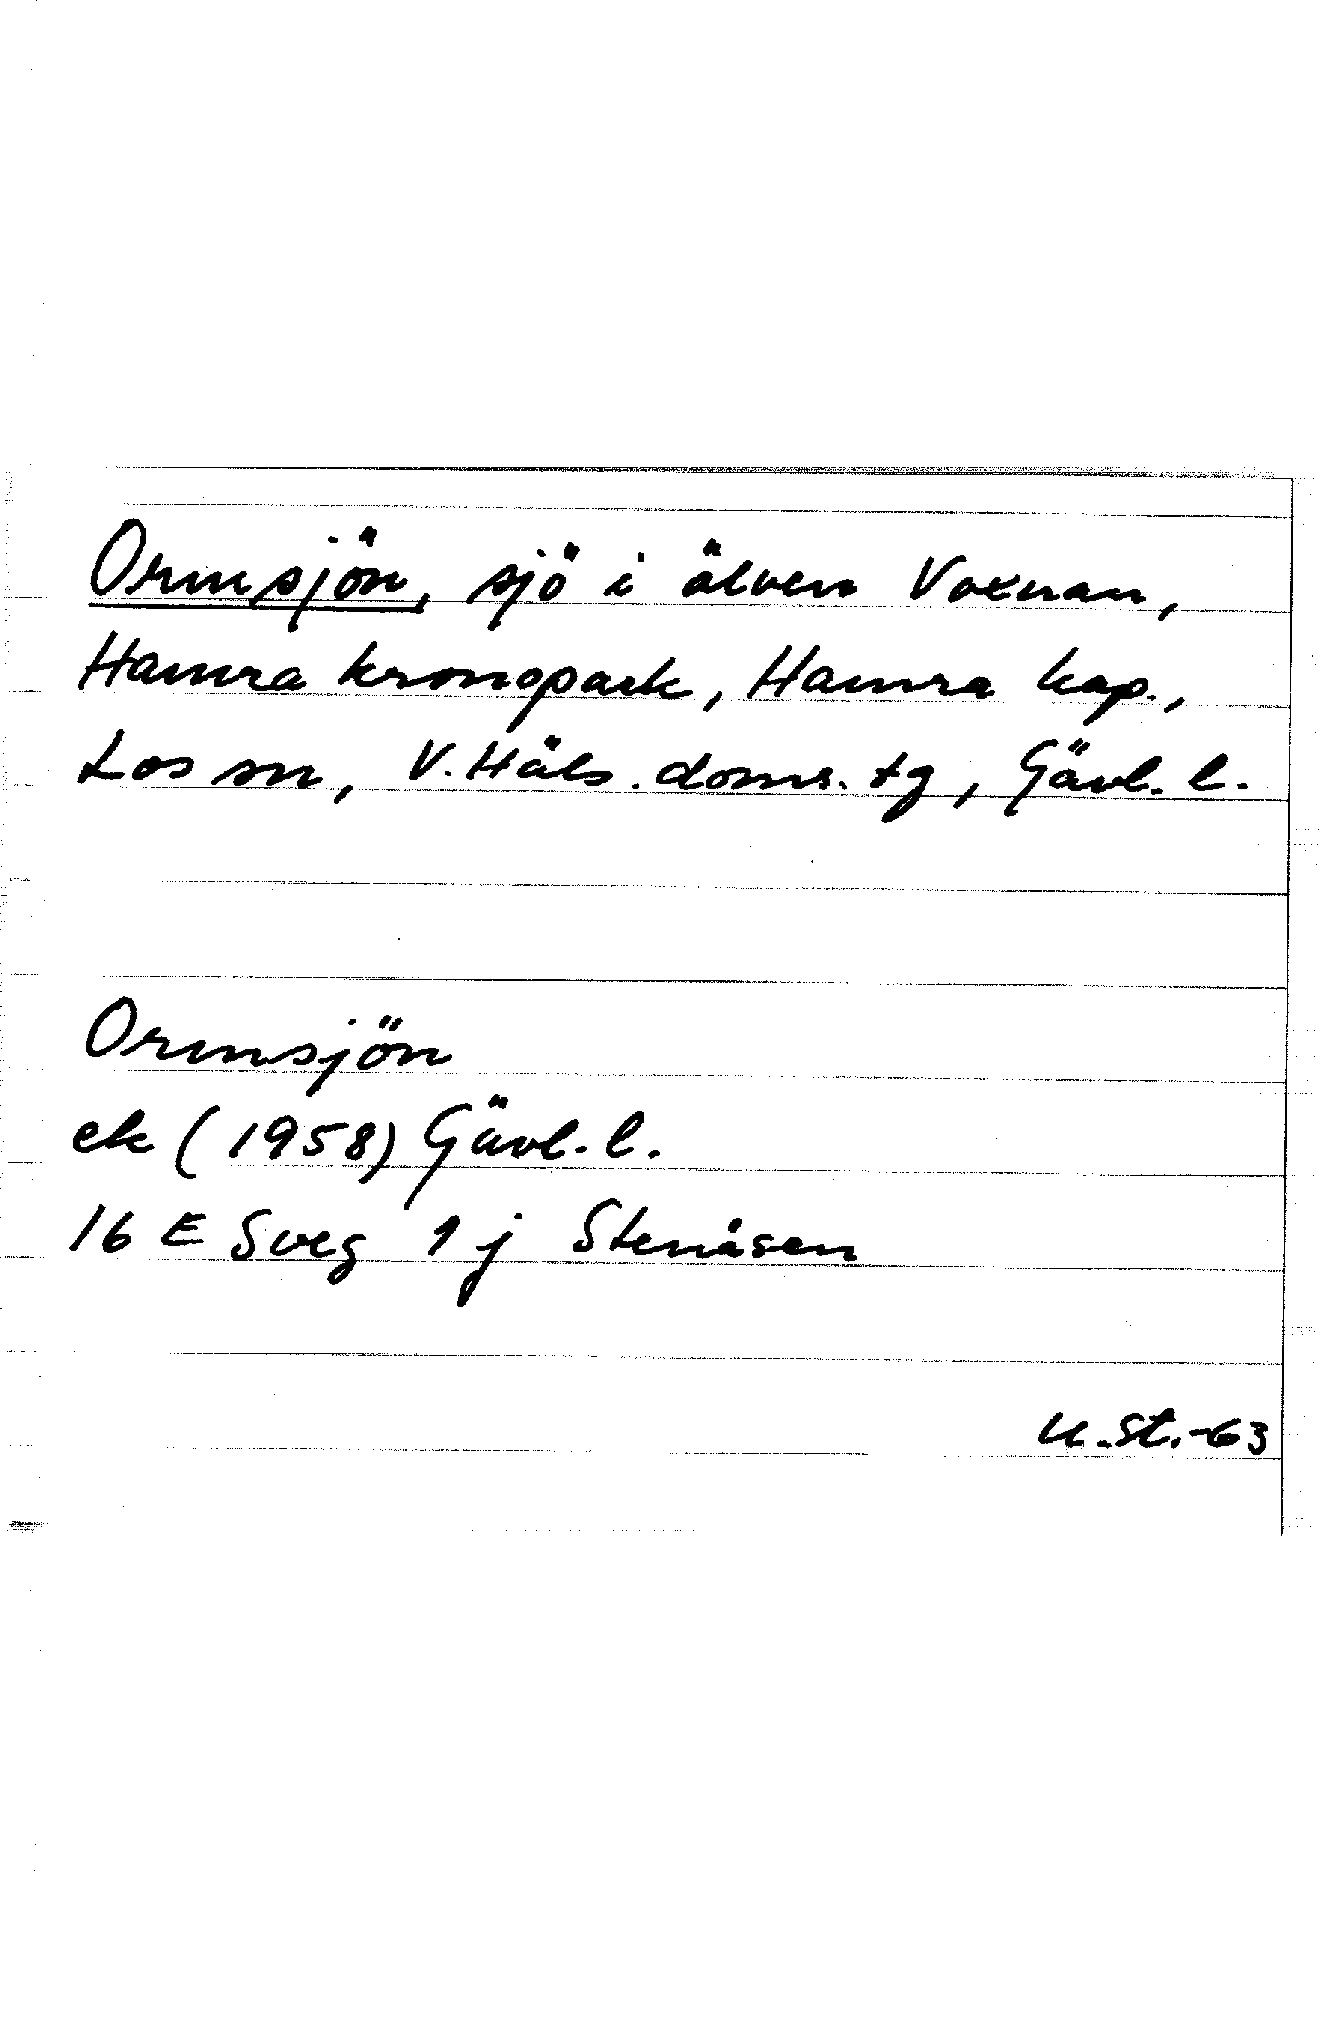 Ormsjön, sjö i älven Voxnan,
Hamra kronopark, Hamra kap.,
Los sn, V. Häls. doms. tg, Gävl. l.
Ormsjön
ek (1958) Gävl. l.
16 E Sveg 1 j Stenåsen
U. St. -63